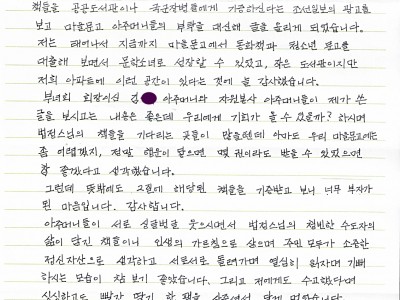 책들을 공공도서관이나 국군장병들에게 기증하신다는 조선일보의 광고를
보고 마을문고 아주머니들의 부탁을 대신해 글을 올리게 되었습니다.
저는 태어나서 지금까지 마을문고에서 동화책과 청소년 문고를
대출해 보면서 문학소녀로 성장할 수 있었고, 작은 도서관이지만
저희 아파트에 이런 공간이 있다는 것에 늘 감사했습니다.
부녀회 회장이신 김 아주머니와 자원봉사 아주머니들이 제가 쓴
글을 보시고는 내용은 좋은데 우리에게 기회가 올 수 있을까? 하시며
법정스님의 책들을 기다리는 곳들이 많을텐데 아마도 우리 마을문고에는
좀 어렵겠지, 정말 행운이 닿으면 몇 권이라도 받을 수 있었으면
참 좋겠다고 생각했습니다.
그런데 뜻밖에도 2월에 해당된 책들을 기증받고 보니 너무 부자가
된 마음입니다. 감사합니다.
아주머니들이 서로 싱글벙글 웃으시면서 법정스님의 청빈한 수도자의
삶이 담긴 책들이니 인생의 가르침으로 삼으며 주민 모두가 소중한
정신자산으로 생각하고 서로서로 돌려가며 열심히 읽자며 기뻐
하시는 모습이 참 보기 좋았습니다. 그리고 저에게도 수고했다면서